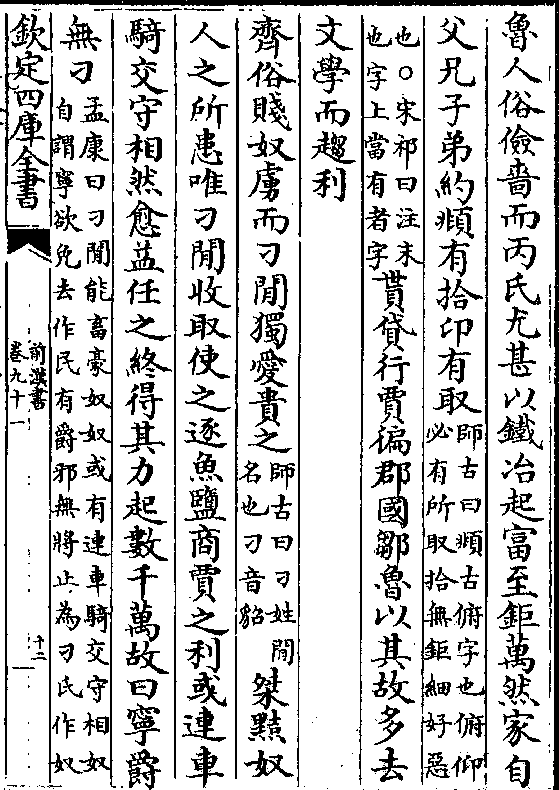 魯人俗儉嗇而丙氏尤甚以鐵冶起富至鉅萬然家自
父兄子弟約頫有拾卬有取師古曰頫古俯字也俯仰必有所取拾無鉅細好惡
也○宋祁曰注末也字上當有者字貰貸行賈徧郡國鄒魯以其故多去
文學而趨利
齊俗賤奴虜而刁閒獨愛貴之師古曰刁姓閒名也刁音貂桀黠奴
人之所患唯刁閒收取使之逐魚鹽商賈之利或連車
騎交守相然愈益任之終得其力起數千萬故曰寧爵
無刁孟康曰刁閒能畜豪奴奴或有連車騎交守相奴自謂寧欲免去作民有爵邪無將止為刁氏作奴
欽定四庫全書
前漢書
卷九十一
十二